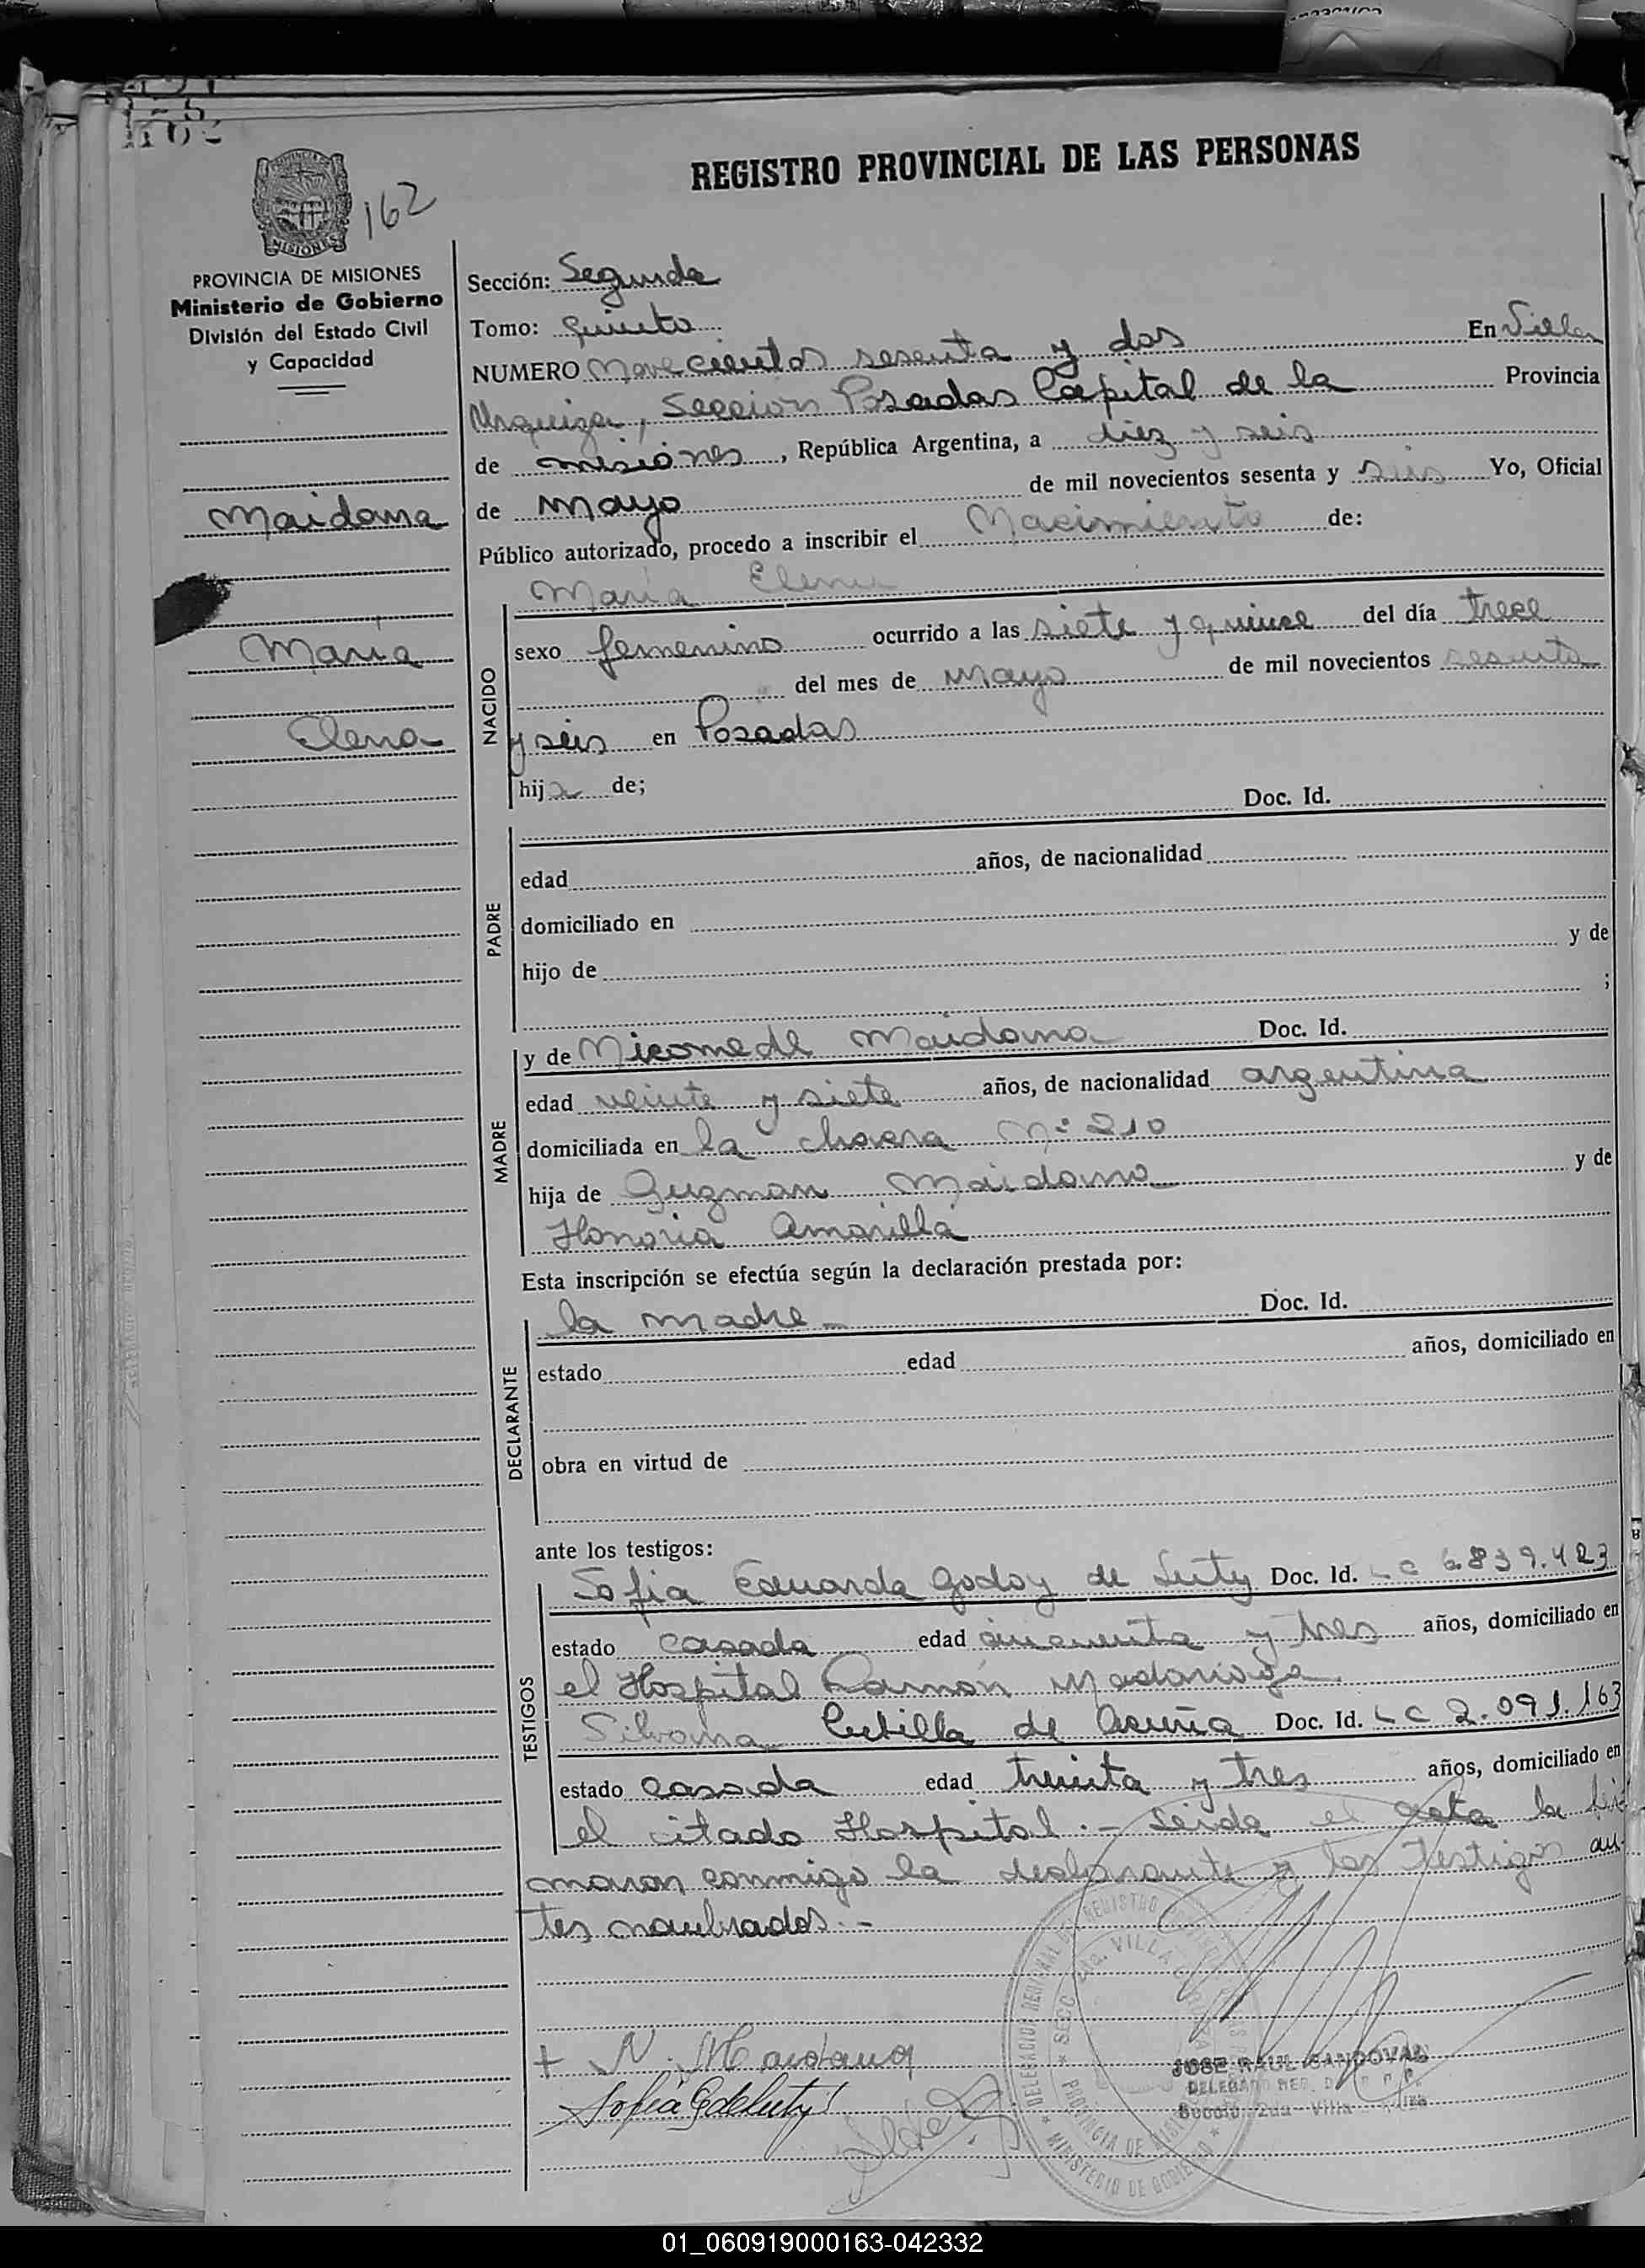 162
REGISTRO PROVINCIAL DE LAS PERSONAS
PROVINCIA DE MISIONES
Ministerio de Gobierno
División del Estado Civil
y Capacidad
Maidana
María
Elena
Sección: Segunda
Tomo: quinto
NUMERO Novecientos sesenta y dos En Villa
Urquiza, Sección Posadas Capital de la Provincia
de misiones, República Argentina, a diez y seis
de mayo de mil novecientos sesenta y seis Yo, Oficial
Público autorizado, procedo a inscribir el Nacimiento de:
María Elena
NACIDO
sexo femenino ocurrido a las siete y quince del día trece
del mes de Mayo de mil novecientos sesenta
y seis en Posadas
hija de;
Doc. Id.
PADRE
edad años, de nacionalidad
domiciliado en
hijo de y de
;
MADRE
y de Nicomede Maidana Doc. Id.
edad veinte y siete años, de nacionalidad argentina
domiciliada en la chacra Nº 210
hija de Guzman Maidana y de
Honoria Amarilla
Esta inscripción se efectúa según la declaración prestada por:
DECLARANTE
la madre Doc. Id.
estado edad años, domiciliado en
obra en virtud de
ante los testigos:
TESTIGOS
Sofia Eduarda Godoy de Doc. Id. LC 6.839.423
estado casada edad cincuenta y tres años, domiciliado en
el Hospital Ramón Madariaga
Silvana de Acuña Doc. Id. LC 2.091.163
estado casada edad treinta y tres años, domiciliado en
el citado Hospital.- Leida el acta la fir
maron conmigo la declarante y los Testigos an
tes nombrados.-
+ N. Maidana
Sofia
JOSE RAUL SANDOVAL
MINISTERIO DE GOBIERNO
01_060919000163-042332